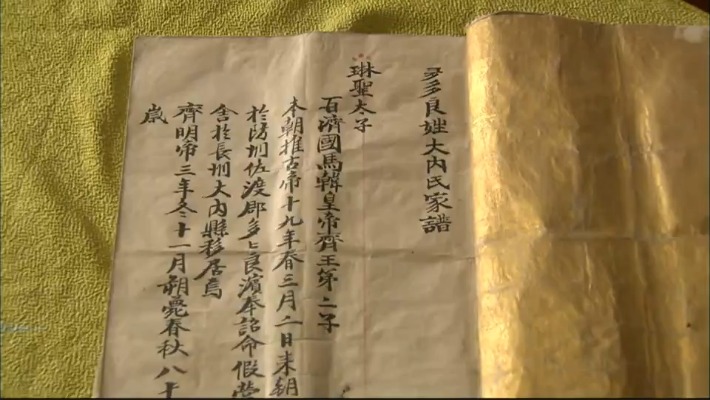 多多良姓大内氏家譜
琳聖太子
百濟國馬韓皇帝齊王第二子
本朝推古帝十九年春三月二日来朝
於防州佐渡郡多々良濱奉詔命假營
舍於長州大内縣移居焉
齊明帝三年冬十一月朔薨春秋八十
歳